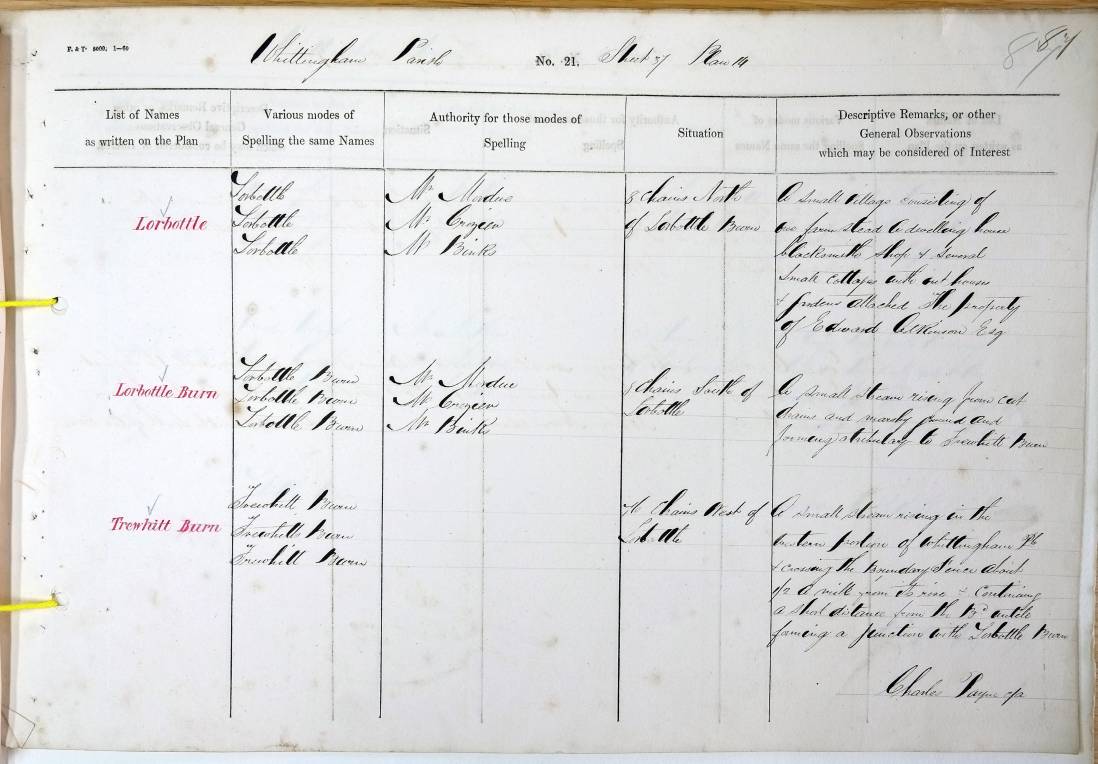 F. & T. 5000; 1—60
Whittingham Parish No. 21. Sheet 37 Plan 14
87
List of Names
as written on the Plan
Various modes of
Spelling the same Names
Authority for those modes of
Spelling
Situation
Descriptive Remarks, or other
General Observations
which may be considered of Interest
Lorbottle
Lorbottle
Lorbottle
Lorbottle
Mr Mordue
Mr Crozier
Mr Binks
8 Chains North
of Lorbottle Burn
A small village consisting of
one farm stead a dwelling house
blacksmiths shop & several
small cottages with out houses
& gardens attached The property
of Edward Atkinson Esq
Lorbottle Burn
Lorbottle Burn
Lorbottle Burn
Lorbottle Burn
Mr Mordue
Mr Crozier
Mr Binks
8 Chains South of
Lorbottle
A small stream rising from cut
drains and marshy ground and
forming a tributary to Trewhitt Burn
Trewhitt Burn
Trewhitt Burn
Trewhitt Burn
Trewhitt Burn
Chains West of
Lorbottle
A small stream rising in the
western portion of Whittingham Ph
& crossing the Boundary Fence about
1/2 a mile from its rise & Continuing
a short distance from the Bd until
forming a junction with Lorbottle Burn
Charles Payne c/a